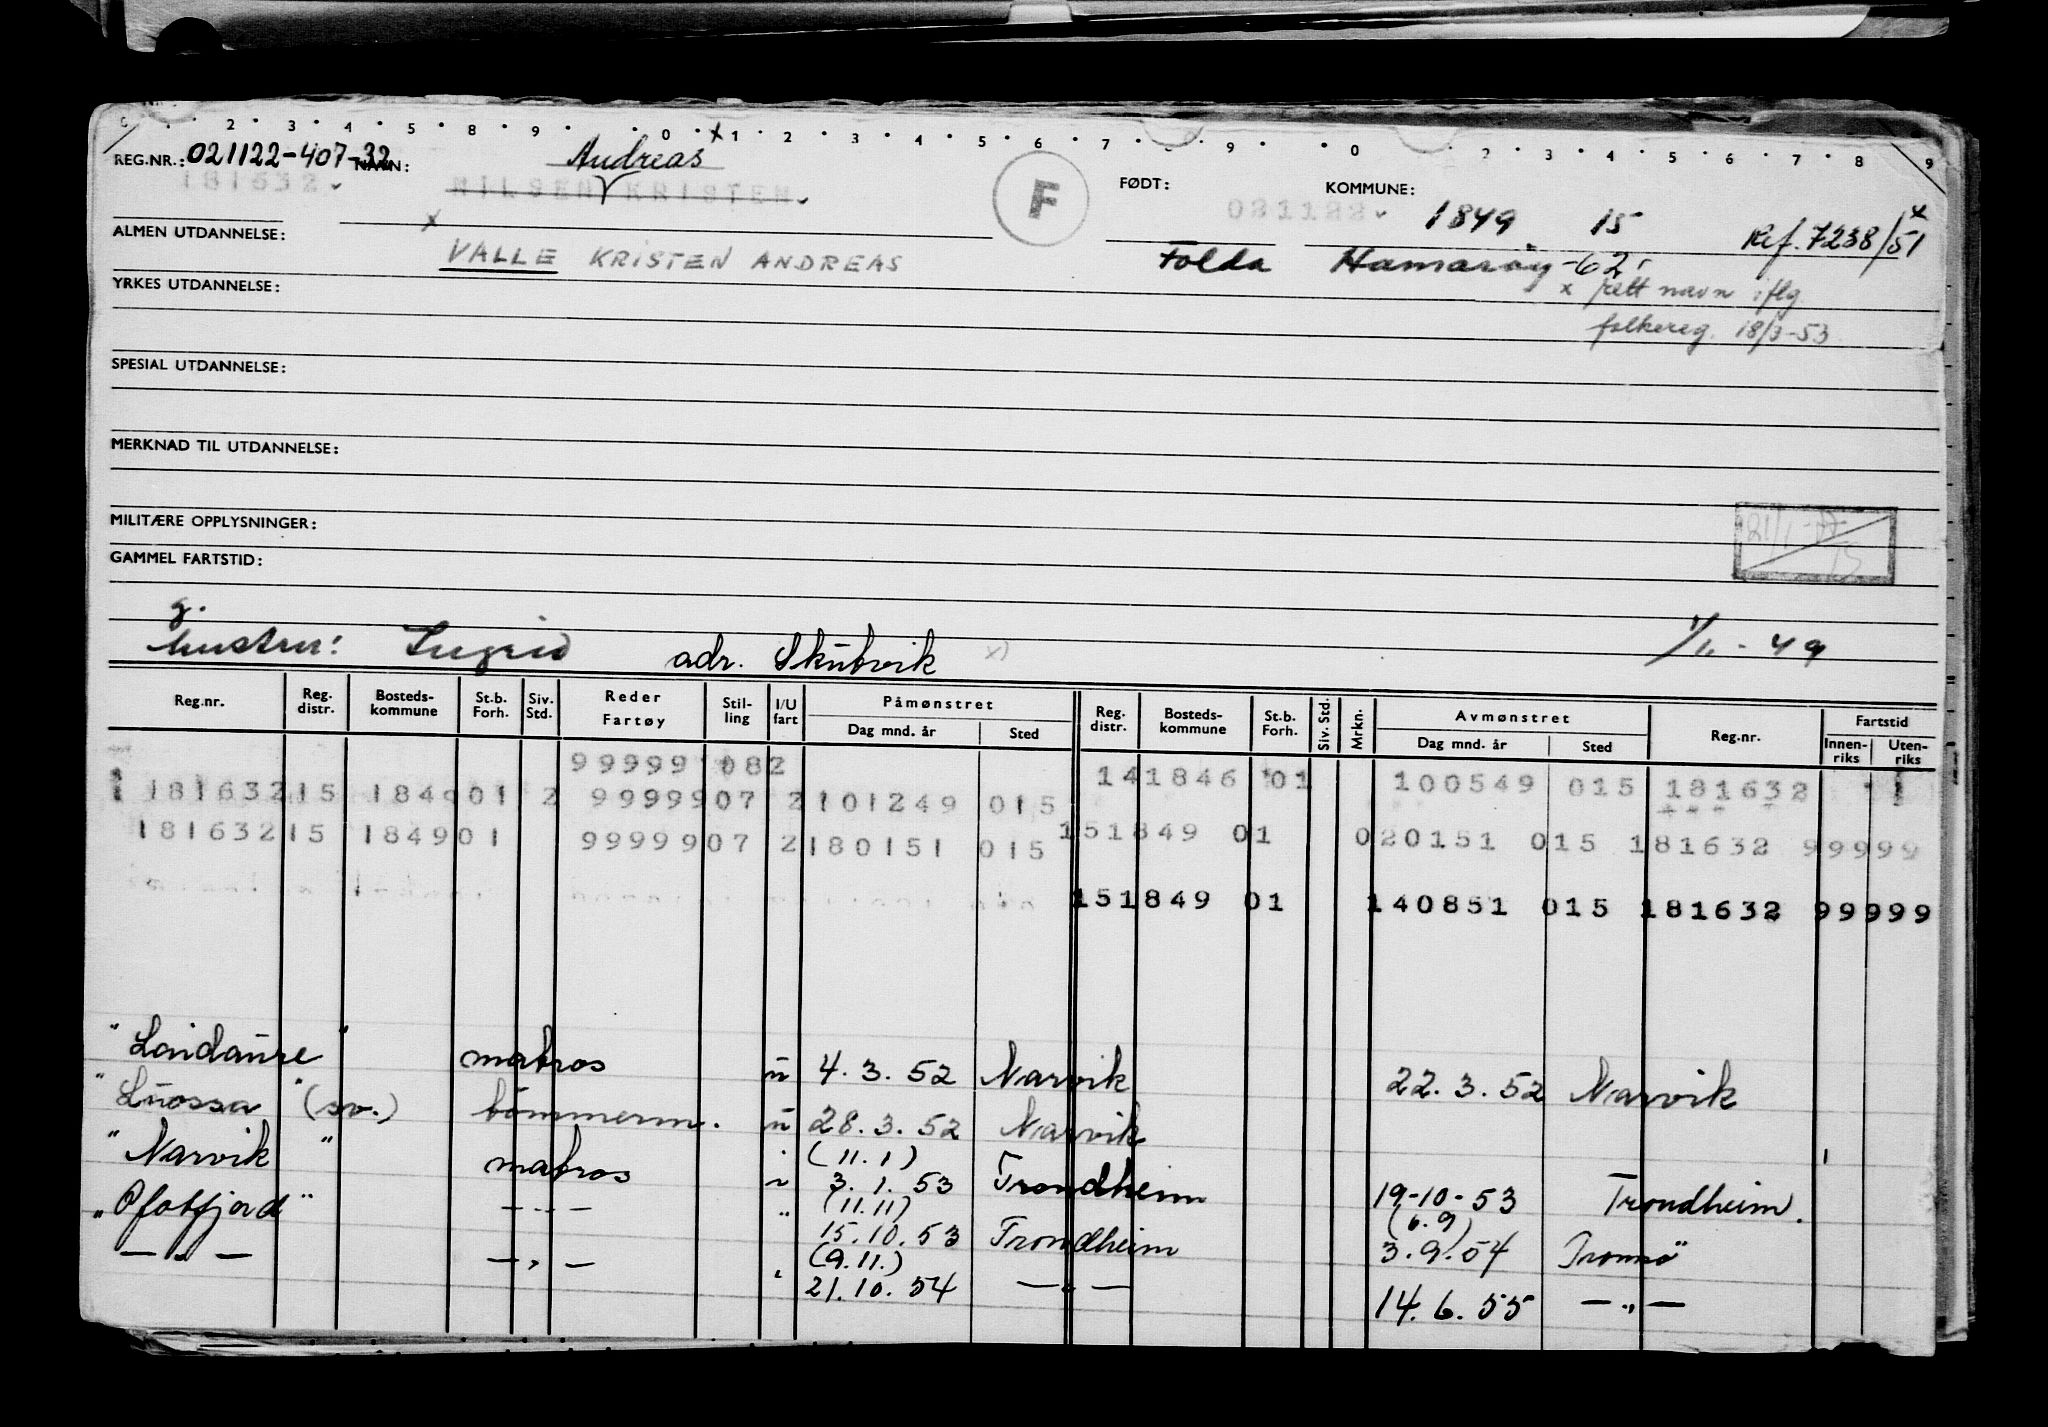 2 3 4 5 8 9 0 x 1 2 3 4 5 6 7 8 9 0 2 3 4 5 6 7 8 9
REG.NR.: 021122-407-32 NAVN: Andreas
181632 NILSEN KRISTEN F FØDT: 021122 KOMMUNE: 1849 15 Ref. 7238/51 x
ALMEN UTDANNELSE: x VALLE KRISTEN ANDREAS Folda Hamarøy -62
YRKES UTDANNELSE: x rett navn iflg
folkereg. 18/3-53
SPESIAL UTDANNELSE:
MERKNAD TIL UTDANNELSE:
MILITÆRE OPPLYSNINGER:
GAMMEL FARTSTID:
g.
hustru: Ingrid adr. Skutvik x) 1/11-49
Reg.nr. Reg. distr. Bosteds-kommune St.b. Forh. Siv. Std. Reder Fartøy Stil-ling I/U fart Påmønstret Dag mnd. år Sted Reg. distr. Bosteds-kommune St.b. Forh. Siv. Std. Mrkn. Avmønstret Dag mnd. år Sted Reg.nr. Fartstid Innen-riks Uten-riks
99999 082 141846 01 100549 015 181632 1
181632 15 1849 01 2 99999 07 2 101249 015 151849 01 020151 015 181632 99999
181632 15 1849 01 99999 07 2 180151 015 151849 01 140851 015 181632 99999
"Laidaure" matros u 4.3.52 Narvik 22.3.52 Narvik
"Luossa" (sv.) tømmerm. u 28.3.52 Narvik
"Narvik" matros i (11.1) 3.1.53 Trondheim 19-10-53 Trondheim.
"Ofotfjord" — " — " (11.11) 15.10.53 Trondheim (6.9) 3.9.54 Tromsø
— " — — " — " (9.11.) 21.10.54 — " — 14.6.55 — " —